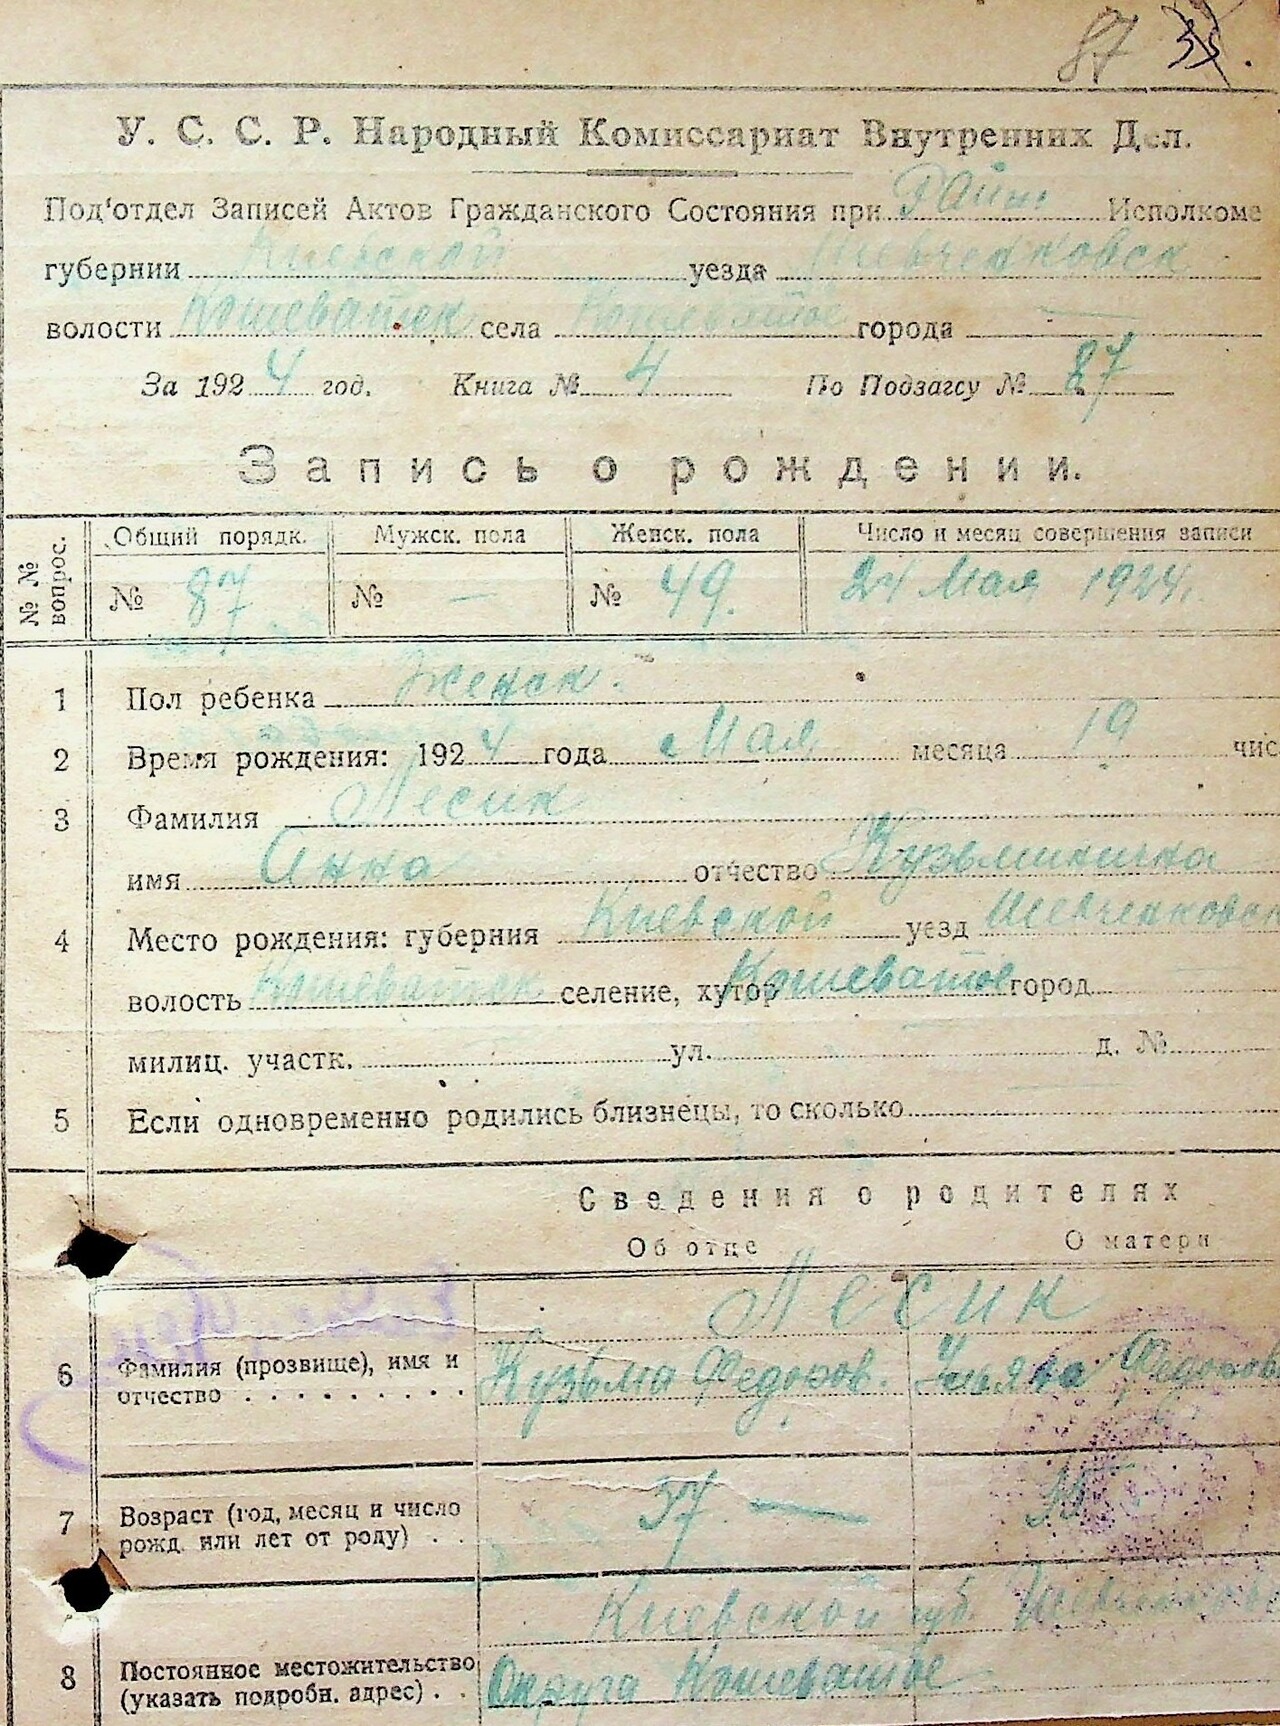 87 35.
У. С. С. Р. Народный Комиссариат Внутренних Дел.
Под‘отдел Записей Актов Гражданского Состояния при Райн Исполкоме
губернии Киевской уезда Шевченковск
волости Кошеватск села Кошеватое города —
За 1924 год. Книга № 4 По Подзагсу № 87
Запись о рождении.
№ № вопрос. Общий порядк. Мужск. пола Женск. пола Число и месяц совершения записи
№ 87 № — № 49. 24 Мая 1924.
1 Пол ребенка Женск.
2 Время рождения: 1924 года Мая месяца 19 чис
3 Фамилия Лесик
имя Анна отчество Кузьминична
4 Место рождения: губерния Киевской уезд Шевченковск
волость Кошеватск селение, хутор Кошеватое город
милиц. участк. ул. д. №
5 Если одновременно родились близнецы, то сколько
Сведения о родителях
Об отце О матери
Лесик
6 Фамилия (прозвище), имя и отчество . . . . . . . . . Кузьма Федоров. Ульяна Федоров
7 Возраст (год, месяц и число рожд. или лет от роду) . . 37 —
Киевской губ. Шевченковс
8 Постоянное местожительство (указать подробн. адрес) . . Округа Кошеватое